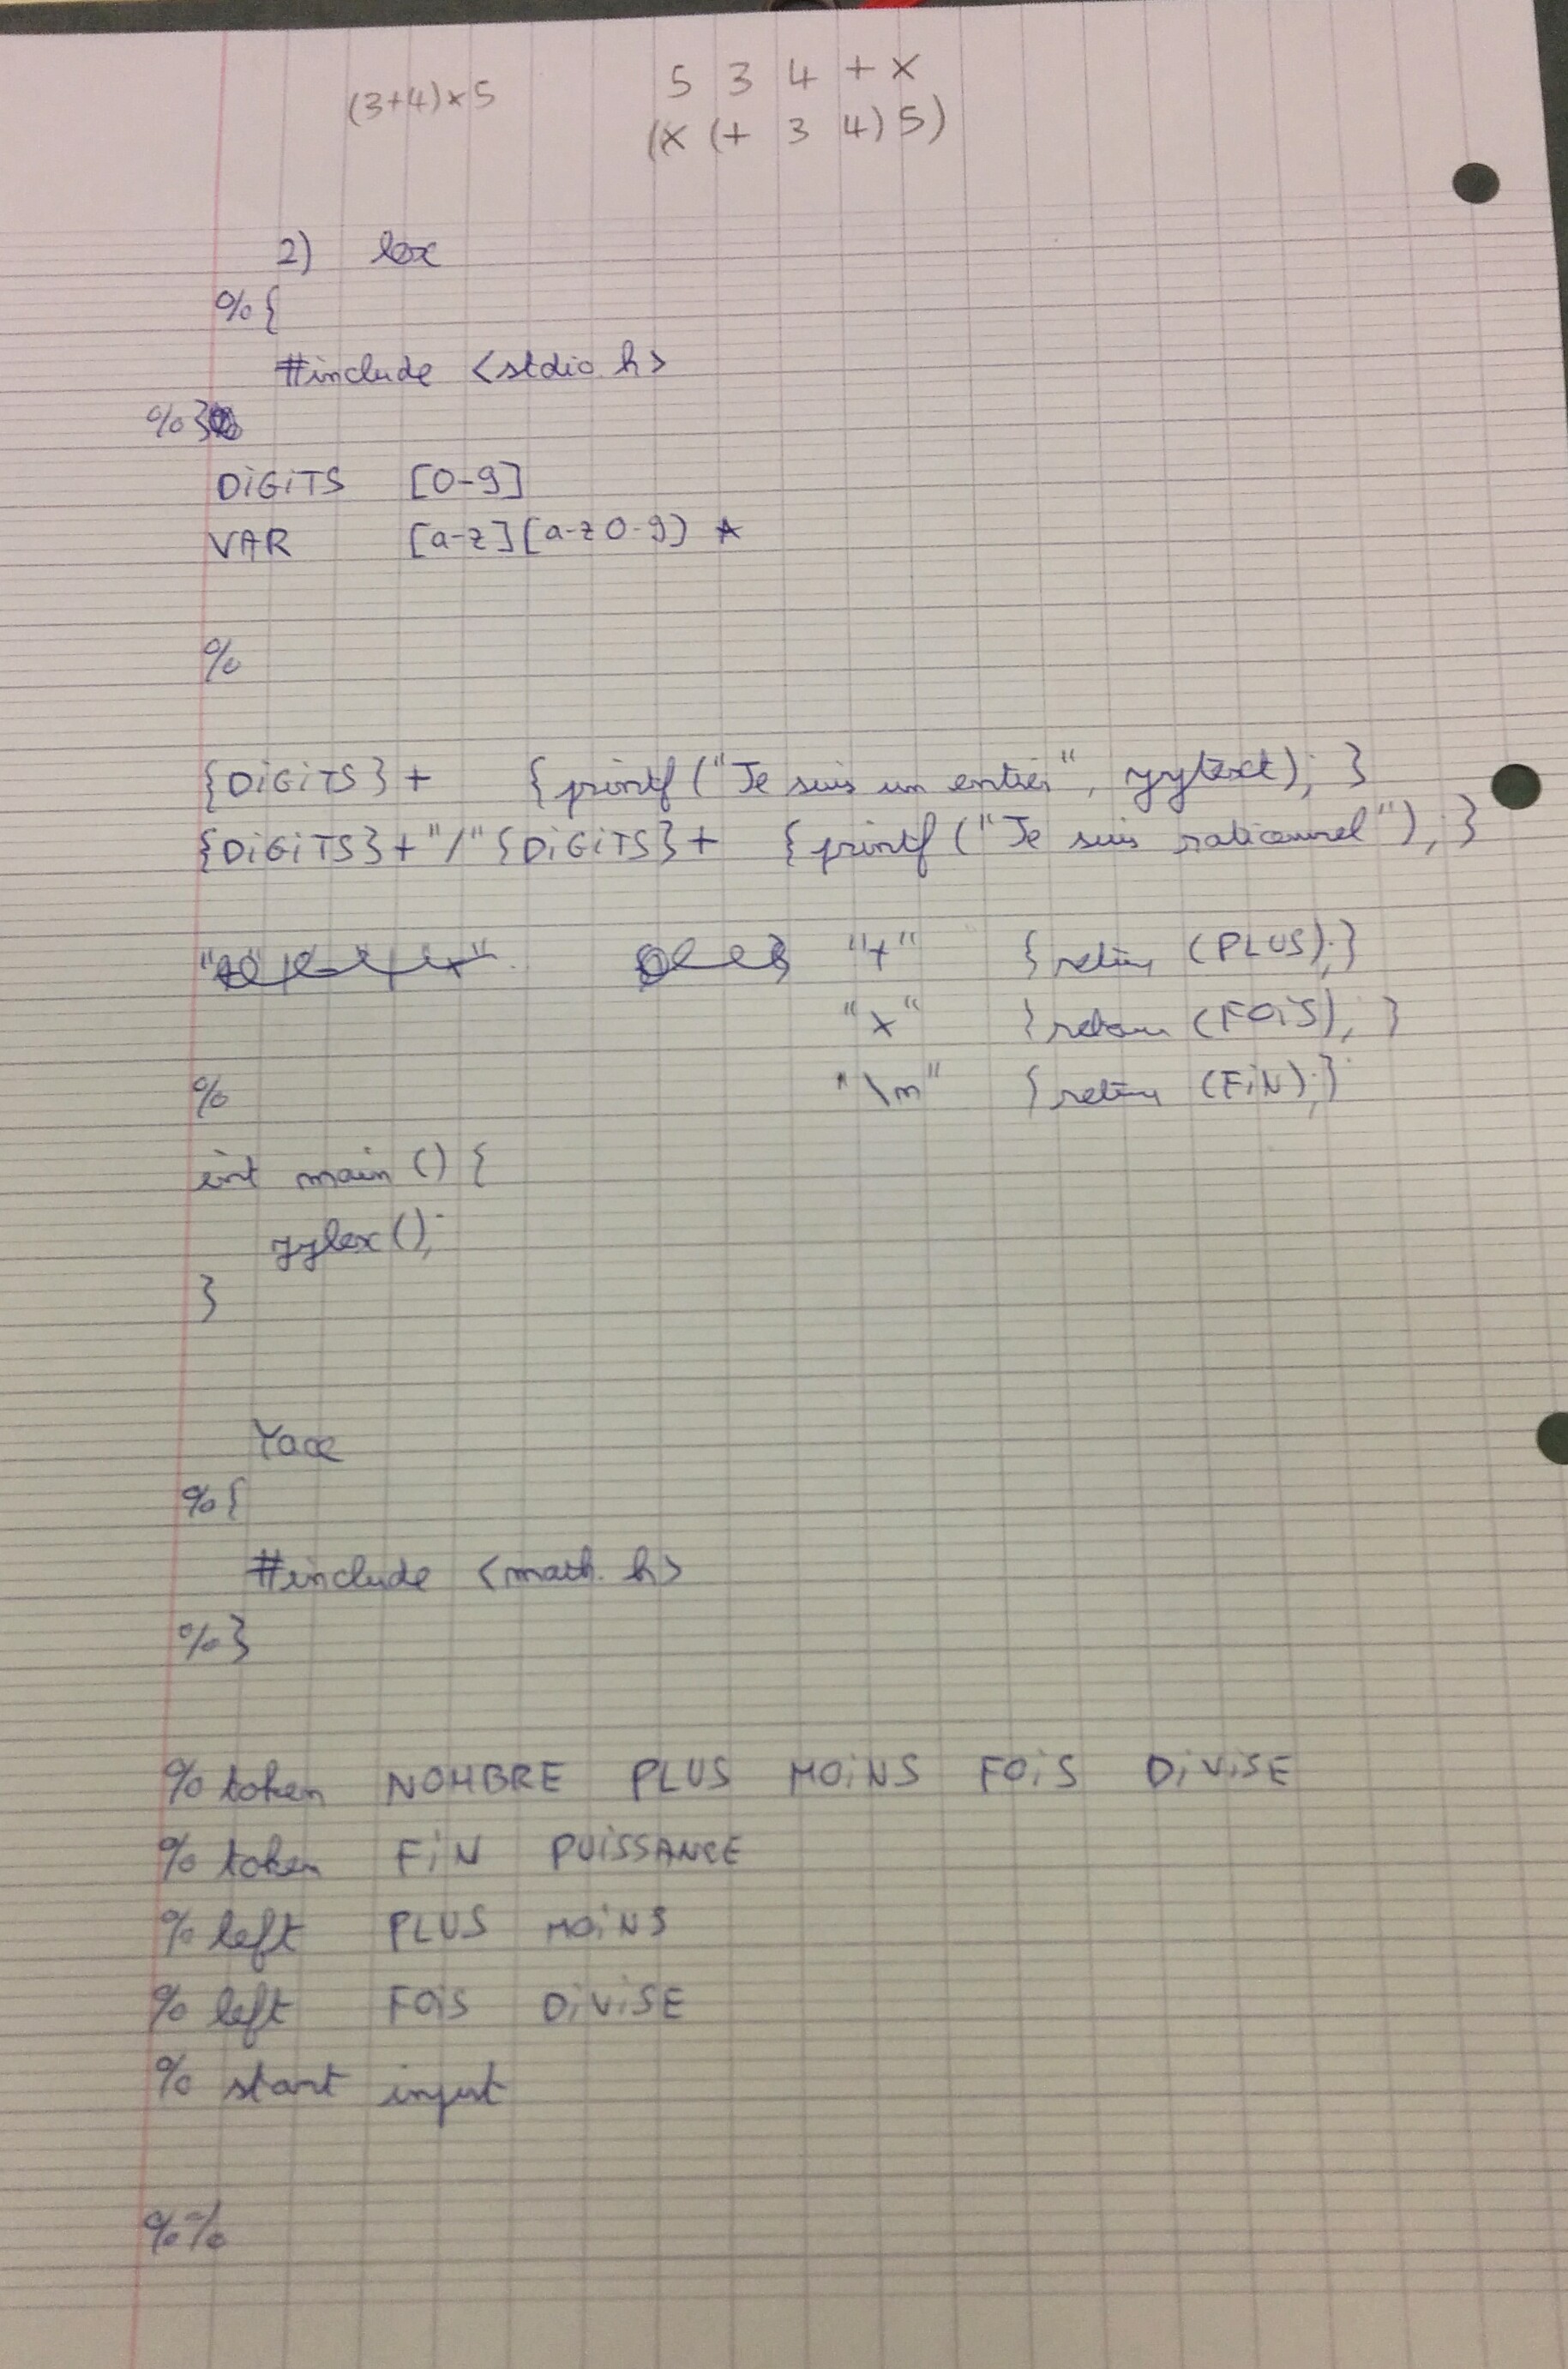 (3+4)x5 5 3 4 + x
(x (+ 3 4) 5)
2) lex
%{
#include <stdio.h>
%}
DiGiTS [0-9]
VAR [a-z][a-z0-9] *
%
{DiGiTS}+ {printf("Je suis un entier", yytext); }
{DiGiTS}+"/"{DiGiTS}+ {printf("Je suis rationnel"); }
"+" {return (PLUS);}
"x" {return (FOiS); }
% "\n" {return (FiN);}
int main () {
yylex();
}
Yacc
%{
#include <math.h>
%}
% token NOMBRE PLUS MOiNS FOiS DiViSE
% token FiN PUiSSANCE
% left PLUS MOiNS
% left FOiS DiViSE
% start input
%%